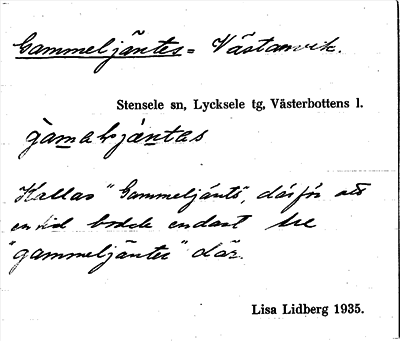 Gammeljäntes = Västanvik.
Stensele sn, Lycksele tg, Västerbottens l.
gamakjäntas
Kallas "Gammeljänts", därför att
en tid bodde endast tre
"gammeljänter" där.
Lisa Lidberg 1935.